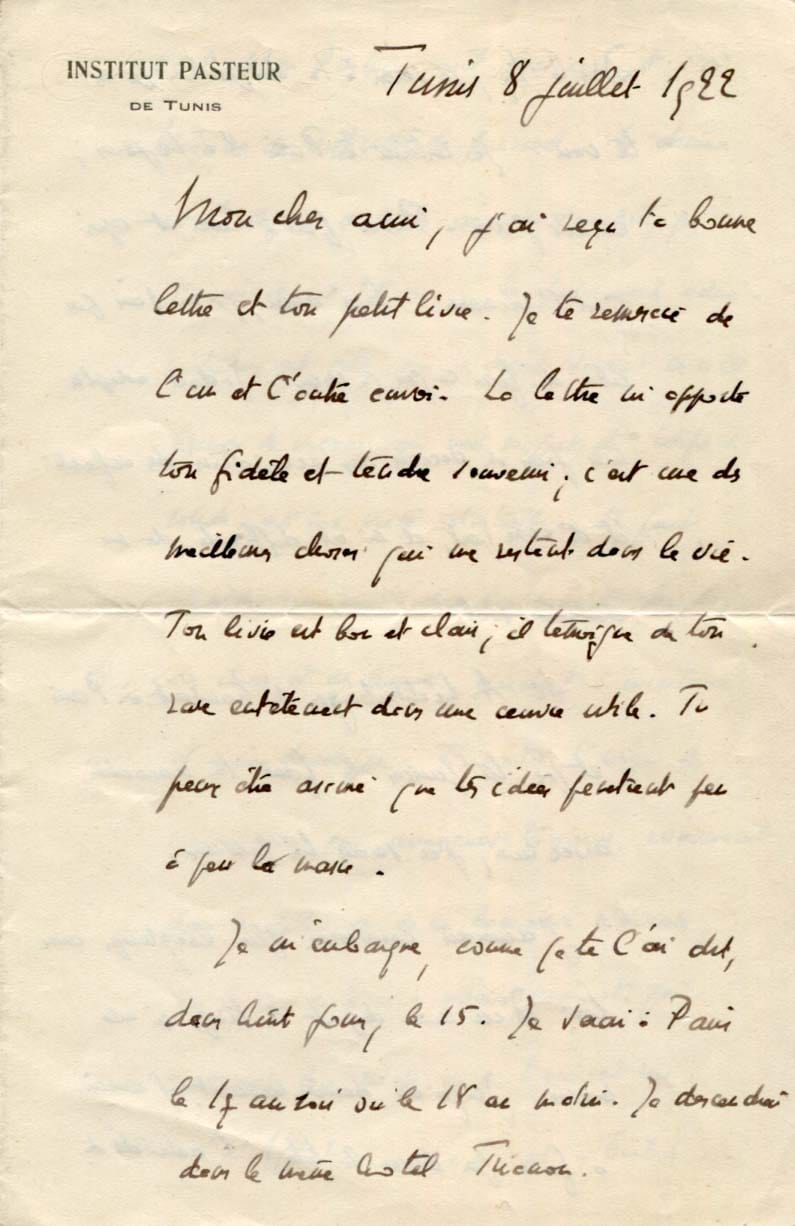 INSTITUT PASTEUR
DE TUNIS
Tunis 8 juillet 1922
Mon cher ami, j'ai reçu ta bonne
lettre et ton petit livre. Je te remercie de
l'un et l'autre envoi. La lettre m'apporte
ton fidèle et tendre souvenir ; c'est une des
meilleures choses qui me restent dans la vie.
Ton livre est bon et clair ; il témoigne de ton
rare entêtement dans une œuvre utile. Tu
peux être assuré que tes idées pénètrent peu
à peu la masse.
Je m'embarque, comme je te l'ai dit,
dans huit jours, le 15. Je serai à Paris
le 17 au soir ou le 18 au matin. Je descendrai
dans le même hotel Trianon.